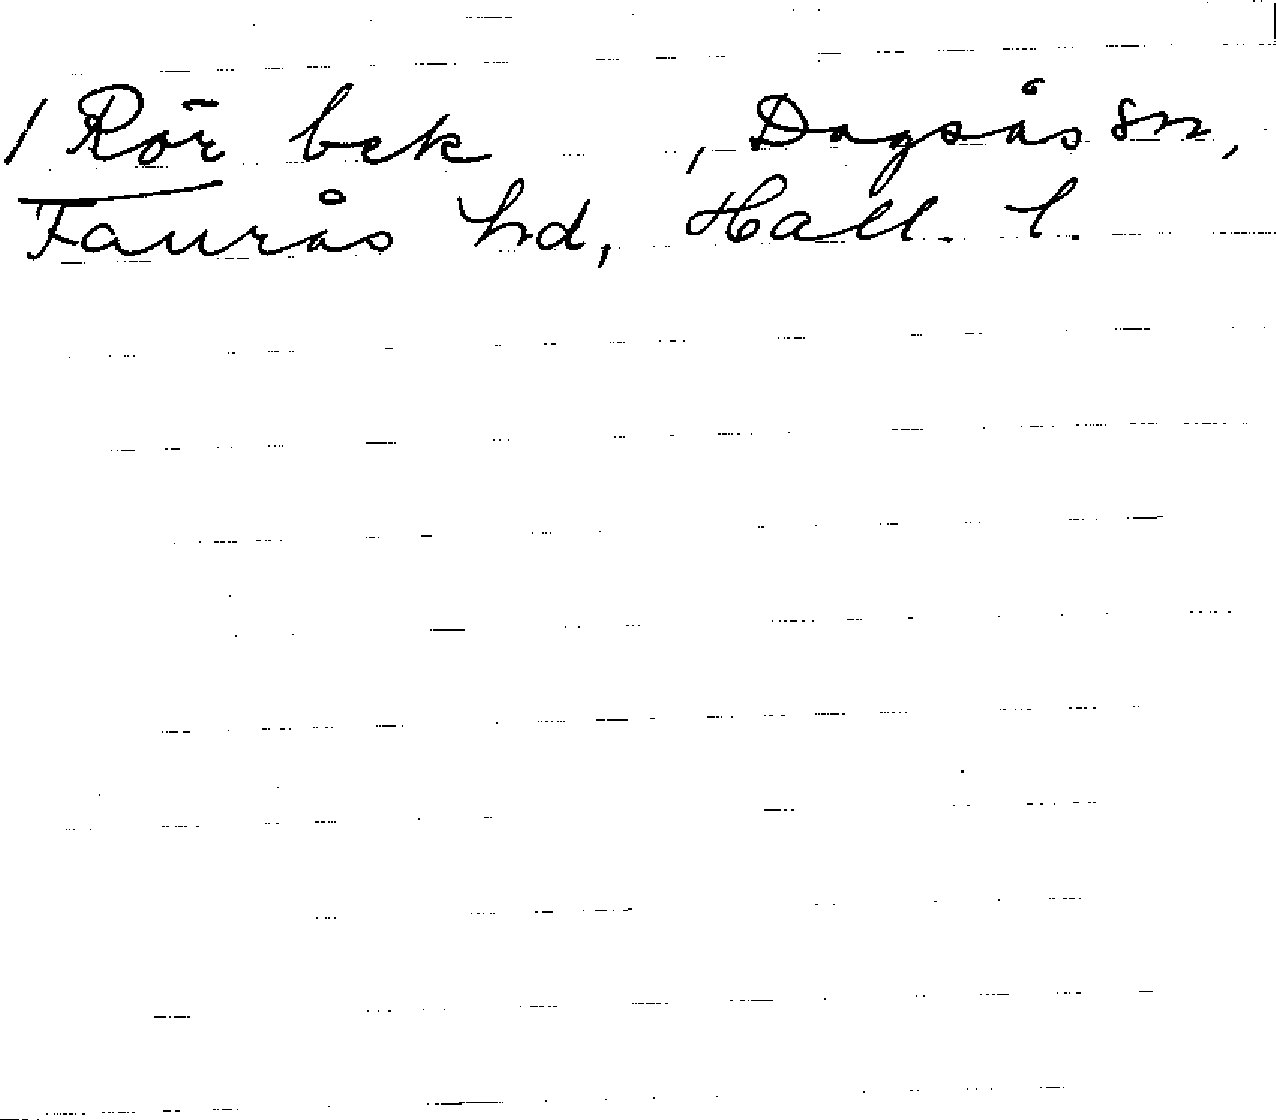 / Rör bek , Dagsås sn,
Faurås hd, Hall. l.